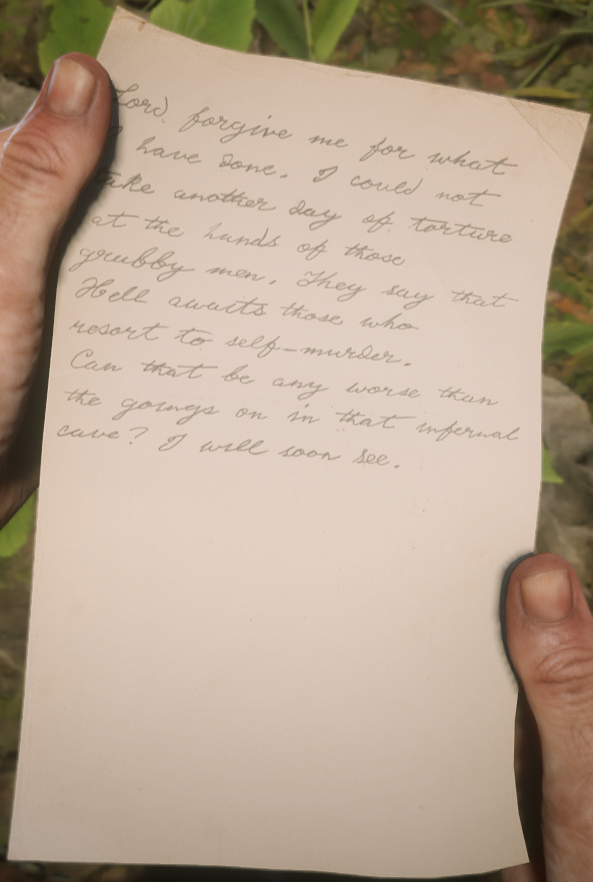 Lord, forgive me for what
I have done. I could not
take another day of torture
at the hands of those
grubby men. They say that
Hell awaits those who
resort to self-murder.
Can that be any worse than
the goings on in that infernal
cave? I will soon see.